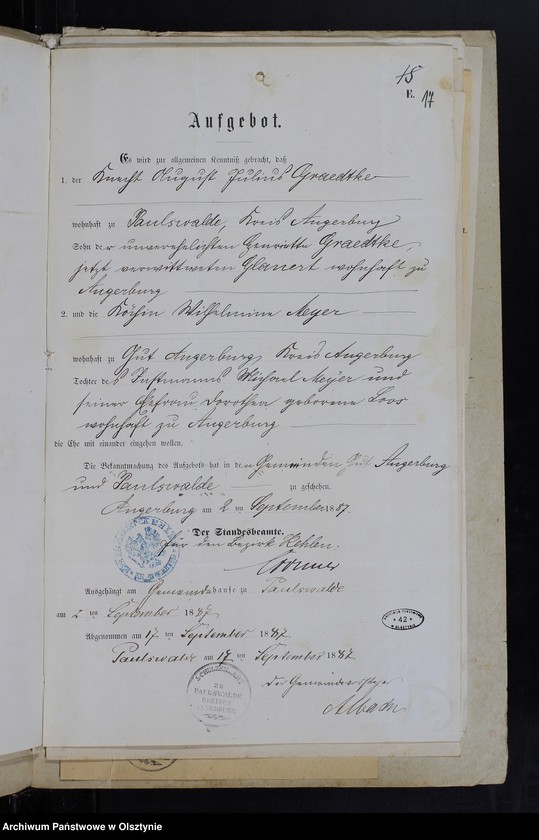 18
E. 17
Aufgebot.
Es wird zur allgemeinen Kenntniß gebracht, daß
1. der Knecht August Julius Graedtke
wohnhaft zu Paulswalde, Kreis Angerburg
Sohn der unverehelichten Henriette Graedtke,
jetzt verwittweten Glanert wohnhaft zu
Angerburg
2. und die Köchin Wilhelmine Meyer
wohnhaft zu Gut Angerburg, Kreis Angerburg
Tochter des Instmanns Michael Meyer und
seiner Ehefrau Dorothea geborene Loos
wohnhaft zu Angerburg
die Ehe mit einander eingehen wollen.
Die Bekanntmachung des Aufgebots hat in den Gemeinden Gut Angerburg
und Paulswalde zu geschehen.
Angerburg am 2 ten September 1887.
Der Standesbeamte.
für den Bezirk Kehlen.
Ausgehängt am Gemeindehause zu Paulswalde
am 2 ten September 1887
Abgenommen am 17 ten September 1887
Paulswalde am 17 ten September 1887
Der Gemeindevorsteher
PAULSWALDE
42
Archiwum Państwowe w Olsztynie